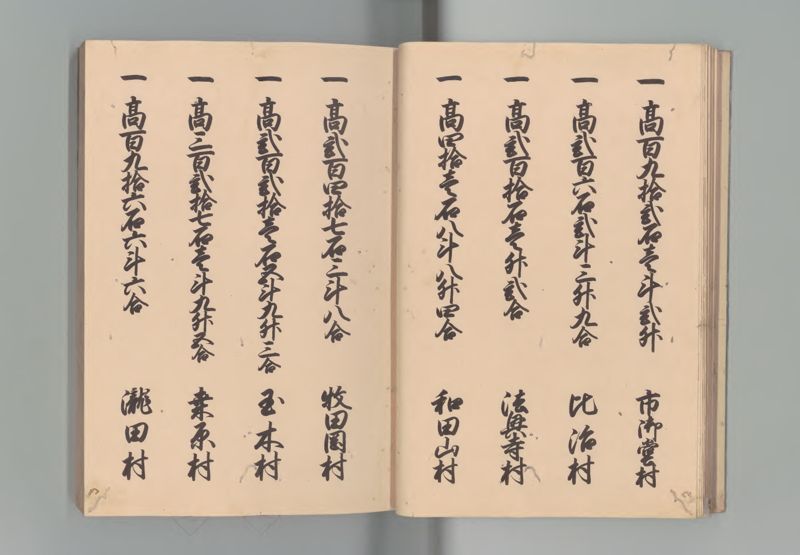 一 高百九拾弐石壱斗弐升 市御堂村
一 高弐百六石弐斗三升九合 比治村
一 高弐百拾石壱升弐合 法興寺村
一 高四拾壱石八斗八升四合 和田山村
一 高弐百四拾七石三斗八合 牧田岡村
一 高弐百弐拾壱石五斗九升三合 玉木村
一 高三百弐拾七石壱斗九升五合 桒原村
一 高百九拾六石六斗六合 瀧田村